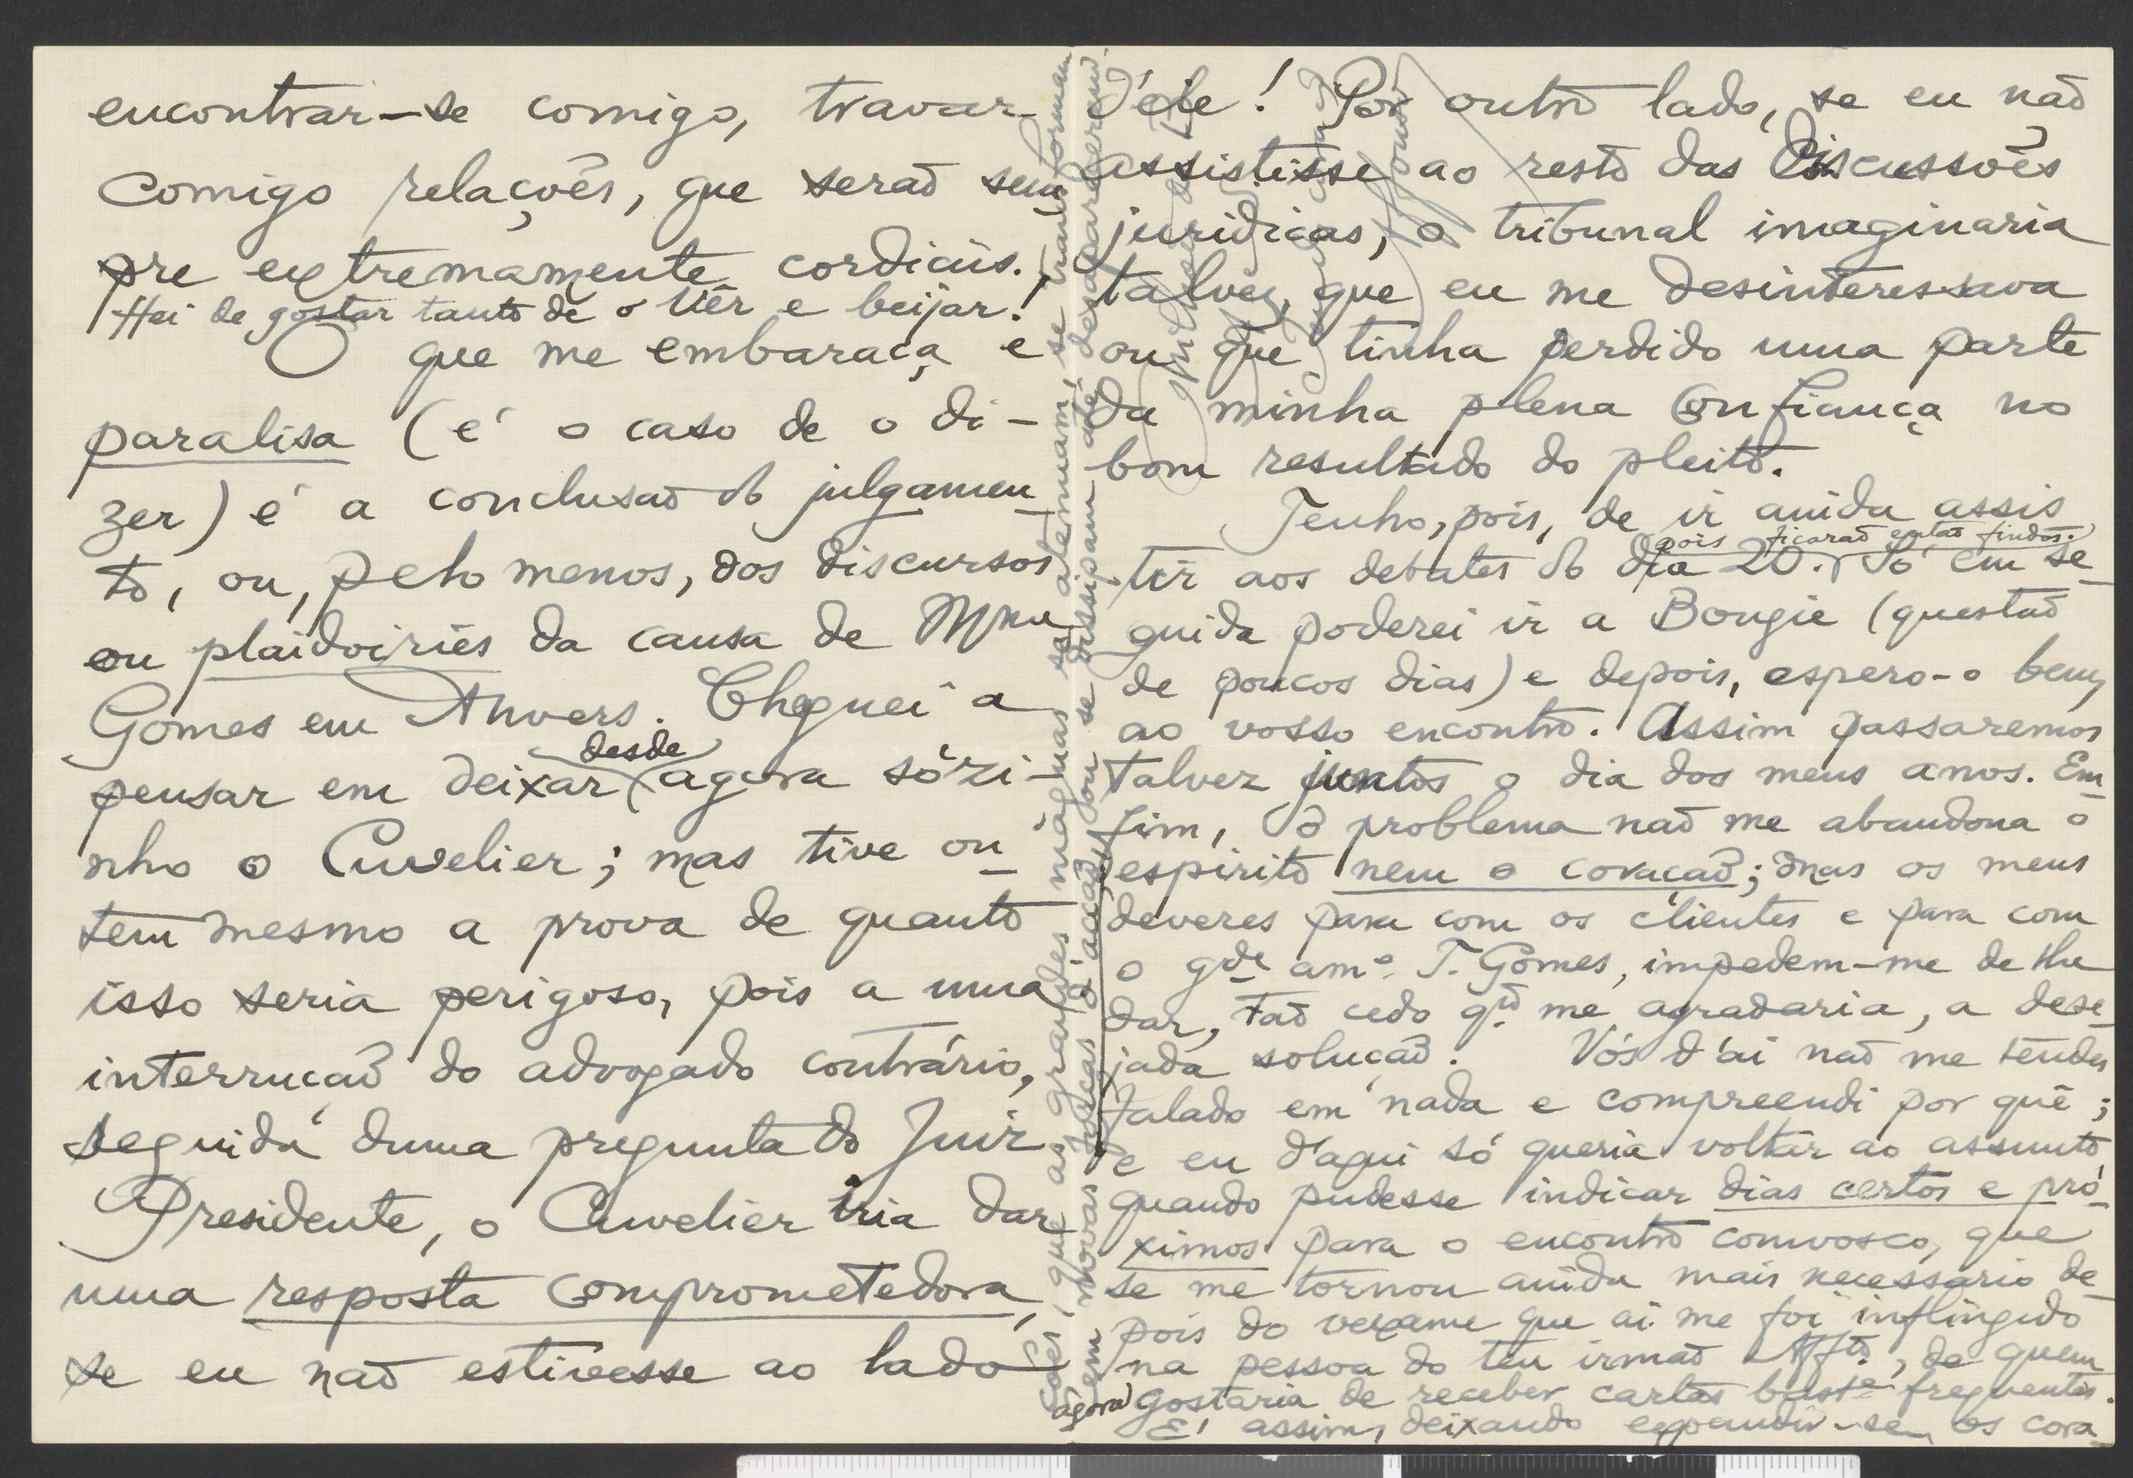 encontrar-se comigo, travar
comigo relaçoẽs, que seraõ sem
pre extremamente cordiais.
Hei de gostar tanto de o Vêr e beijar!
O que me embaraça e
paralisa (é o caso de o di-
zer) é a conclusaõ do julgamen
to, ou, pelo menos, dos discursos
ou plaidoiries da causa de Mme
Gomes em Anvers. Cheguei a
pensar em deixar desde agora sózi-
nho o Cuvelier; mas tive on-
tem mesmo a prova de quanto
isso seria perigoso, pois a uma
interruçaõ do advogado contrário,
seguida duma pregunta do Juiz
Presidente, o Cuvelier iria dar
uma resposta comprometedora,
se eu naõ estivesse ao lado
d'ele! Por outro lado, se eu naõ
assistisse ao resto das Discussoẽs
juridicas, o tribunal imaginaria
talvez, que eu me desinteressava
ou que tinha perdido uma parte
da minha plena confiança no
bom resultado do pleito.
Tenho, pois, de ir ainda assis
tir aos debates do dia 20. pois ficaraõ entaõ findos. Só em se-
guida poderei ir a Bougie (questaõ
de poucos dias) e depois, espero-o bem,
ao vosso encontro. Assim passaremos
talvez juntos o dia dos meus anos. Em-
fim, o problema naõ me abandona o
espirito nem o coraçaõ; mas os meus
deveres para com os clientes e para com
o gde amº. T. Gomes, impedem-me de lhe
dar, taõ cedo qto me agradaria, a dese-
jada soluçaõ. Vós d'ai naõ me tendes
falado em nada e compreendi por quê;
e eu d'aqui só queria voltar ao assunto
quando pudesse indicar dias certos e pró-
ximos para o encontro comvosco, que
se me tornou ainda mais necessario de-
pois do vexame que ai me foi inflingido
na pessoa do teu irmaõ Affº., de quem
agora gostaria de receber cartas bast.e frequentes.
E' assim, deixando expandir-se, os cora
çoẽs, que as grandes maguas se atenuam, se transformam
em novas forças d'acçaõ, ou se dissipam até desaparecerem